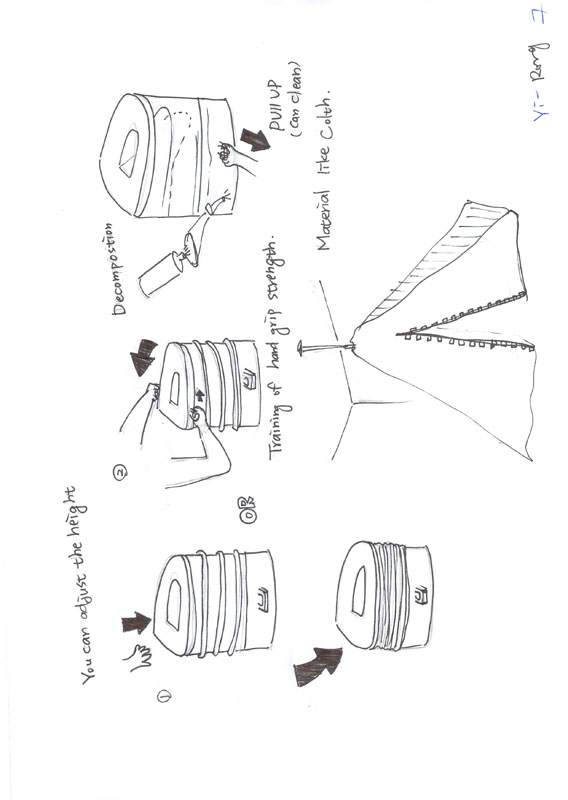 Yi-Rong 7
You can adjust the height
①
②
OR
Training of hand grip strength.
Decompostion
PULL UP
(can clean)
Material like Colth.